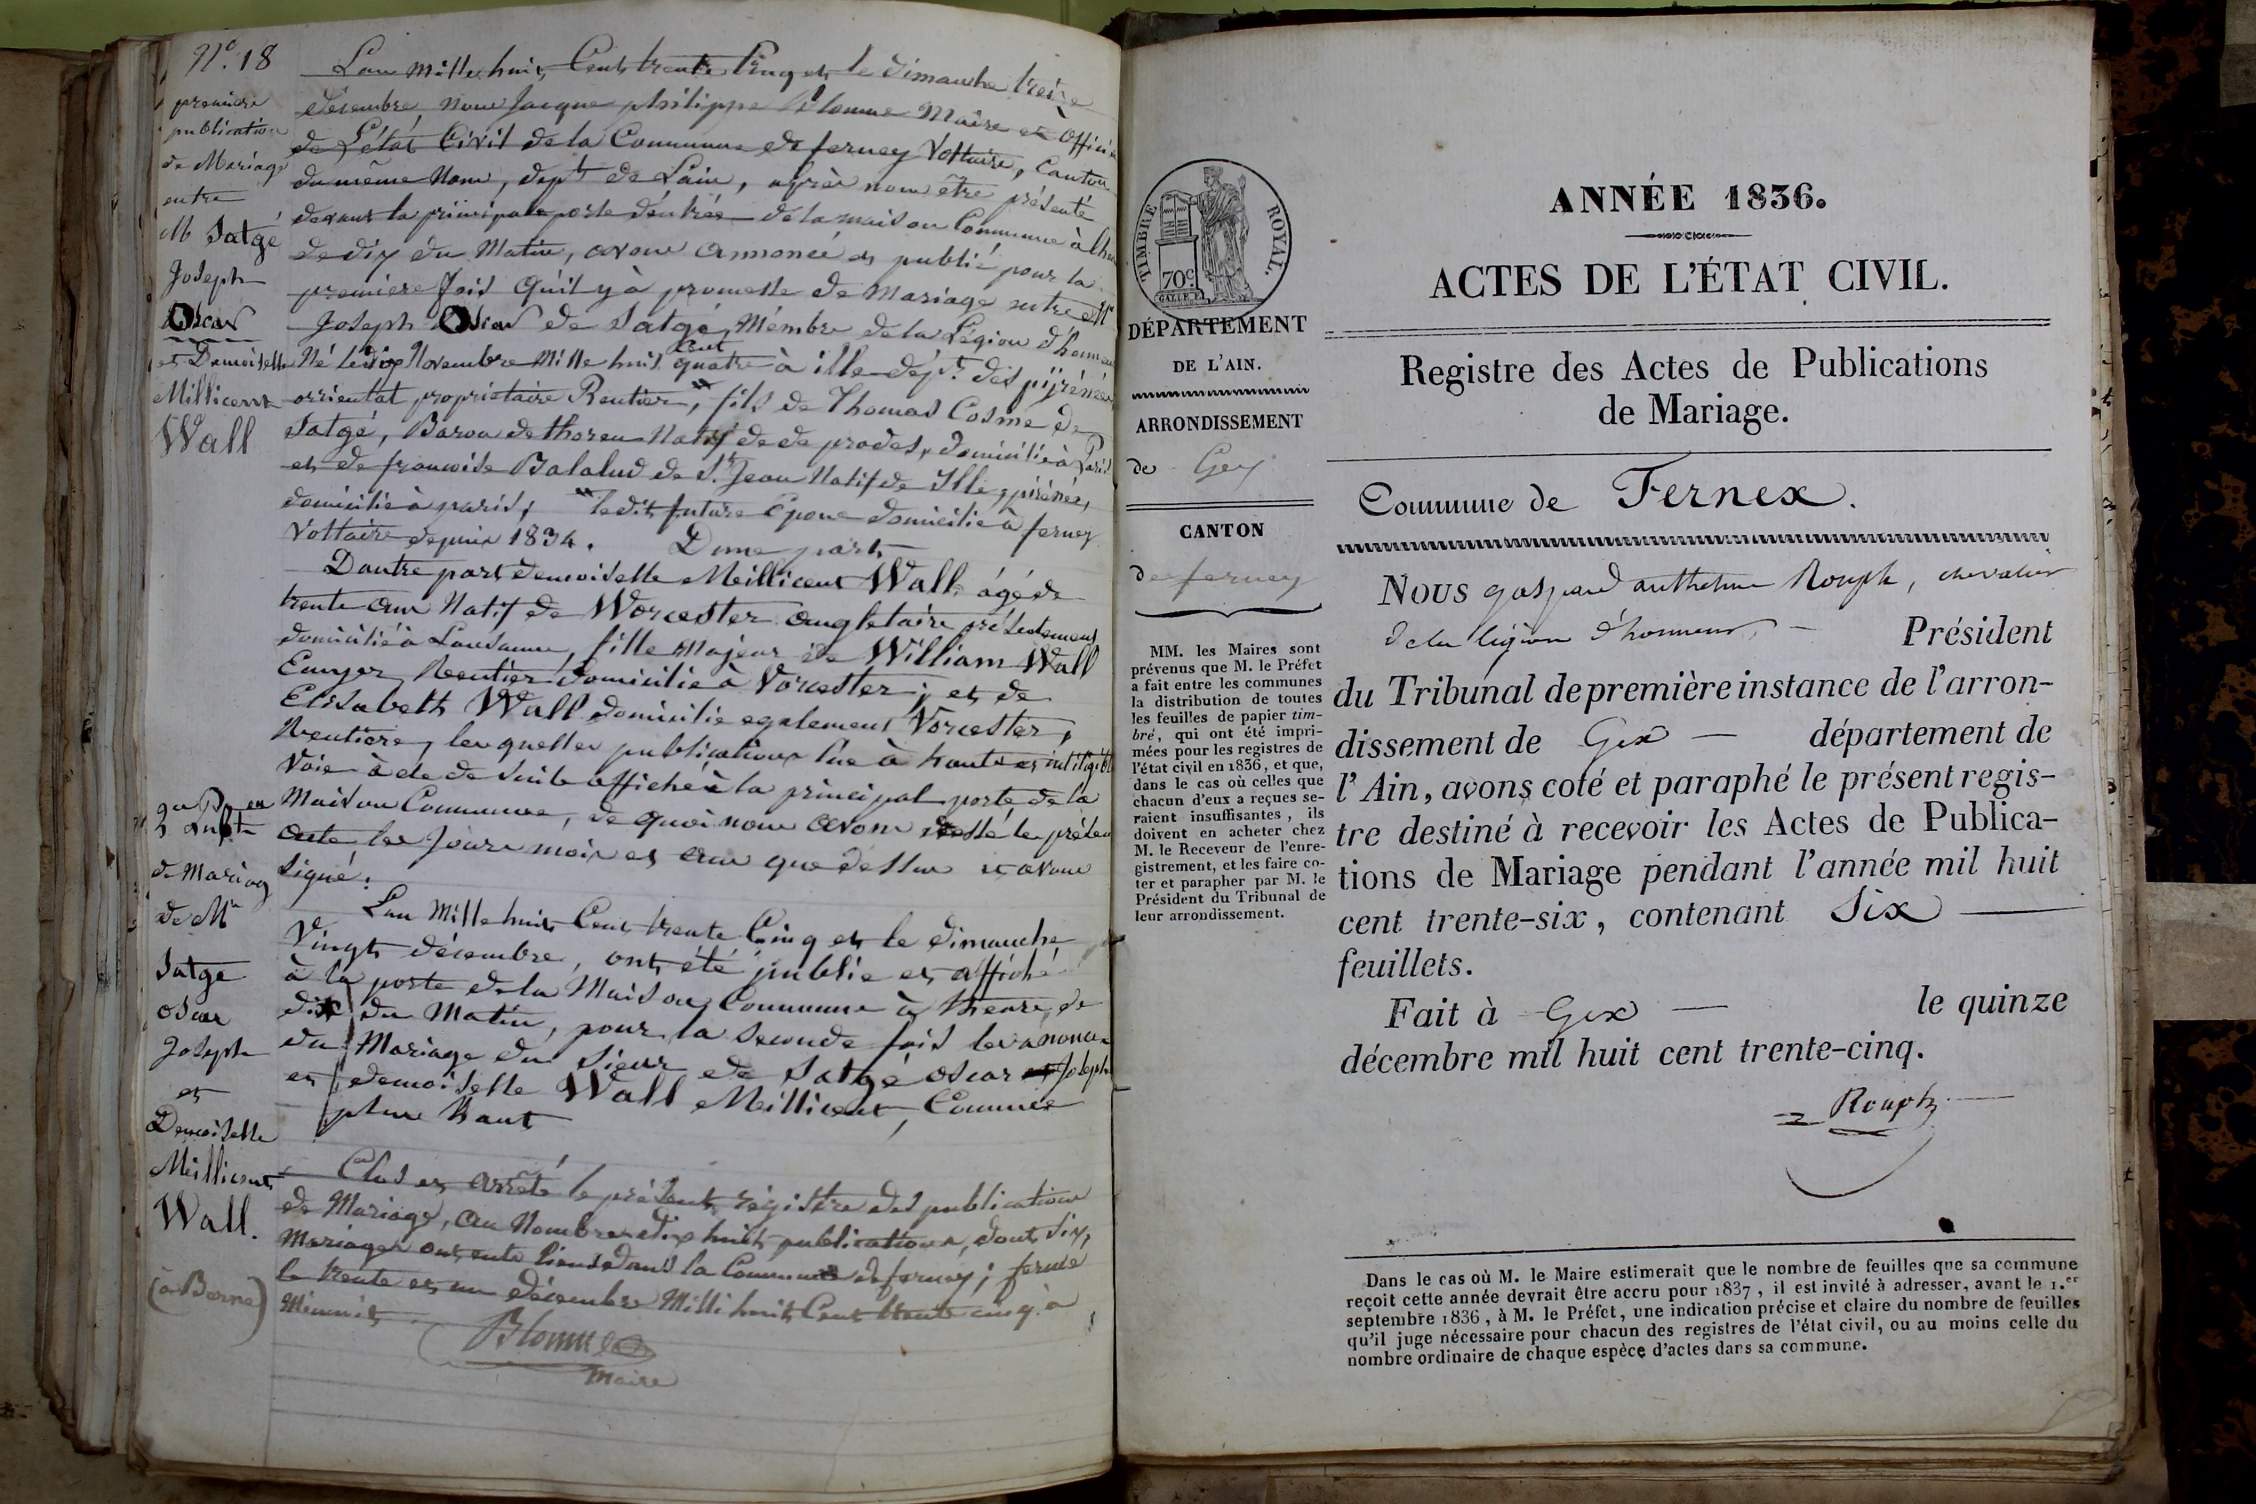 N.º 18
première
publication
de Mariage
entre
M Satgé
Joseph
Oscar
et Demoiselle
Millicent
Wall
L'an mille huit Cent trente Cinq et le dimanche treize
décembre, nous Jacque philippe Blonme Maire et Officier
de L'état Civil de la Commune de ferney Voltaire, Canton
du même Nom, dept de Lain, après nous être présenté
devant la principale porte d'entrée de la maison Commune à lheure
de dix du Matin, avons annoncé et publié pour la
premiere fois qu'il y à promesse de Mariage entre Mr
Joseph Oscar de Satgé, Mémbre de la Légion d'honneur
Né le dix Novembre Mille huit cent quatre à ille dépt. des pyrénées
orrientat propriétaire Rentier, fils de Thomas Cosme de
Satgé, Baron de thoren Natif de de prades, domicilié à Paris
et de francoise Balalud de St. Jean Natif de Ille, pirénée,
domicilié à paris, ledit future Epoux domicilié à ferney
Voltaire depuis 1834. Dune part
Dautre part demoiselle Meillicent Wall, âgé de
trente ans Natif de Worcester angletaire présentement
domicilié à Lausanne, fille Majeur de William Wall
Rentier domicilié à Vorcester; et de
Elisabeth Wall domicilie egalement Vorcester,
Rentiere, lesquelles publications lue à haute et intiligible
Voie à ete de suite affiché à la principal porte de la
Maison Commune, de quoi nous avons dressé le présent
acte les Jours mois et ans que dessus et avons
signé.
2me
de Mariag
de Mr
Satge
oscar
Joseph
et
Demoiselle
Meillicent
Wall.
(à Berne)
Lan Mille huit Cent trente Cinq et le dimanche
Vingt décembre, ont été publie et affiché
à la porte de la Maison Commune à lheure de
dix du Matin, pour la seconde fois
du Mariage du Sieur de Satgé oscar Joseph
et demoiselle Wall Meillicent, Comme
plus haut
Clos et arrêté le présent régistre des publication
de Mariage, au Nombre dix huit publications, dont Six,
Mariages ont eute lieus dans la Commune de ferney; fermé
le trente et un décembre Mille huit Cent trente cinq à
Minuit.
Blonme
Maire
TIMBRE ROYAL.
70c.
GALLE F.
DÉPARTEMENT
DE L'AIN.
ARRONDISSEMENT
de Gex
CANTON
de ferney
MM. les Maires sont
prévenus que M. le Préfet
a fait entre les communes
la distribution de toutes
les feuilles de papier tim-
bré, qui ont été impri-
mées pour les registres de
l'état civil en 1836, et que,
dans le cas où celles que
chacun d'eux a reçues se-
raient insuffisantes, ils
doivent en acheter chez
M. le Receveur de l'enre-
gistrement, et les faire co-
ter et parapher par M. le
Président du Tribunal de
leur arrondissement.
ANNÉE 1836.
ACTES DE L'ÉTAT CIVIL.
Registre des Actes de Publications
de Mariage.
Commune de Fernex.
NOUS gaspard anthelme Rouph, chevalier
de la légion d'honneur, — Président
du Tribunal de première instance de l'arron-
dissement de Gex — département de
l'Ain, avons coté et paraphé le présent regis-
tre destiné à recevoir les Actes de Publica-
tions de Mariage pendant l'année mil huit
cent trente-six, contenant Six —
feuillets.
Fait à Gex — le quinze
décembre mil huit cent trente-cinq.
Rouph
Dans le cas où M. le Maire estimerait que le nombre de feuilles que sa commune
reçoit cette année devrait être accru pour 1837, il est invité à adresser, avant le 1.er
septembre 1836, à M. le Préfet, une indication précise et claire du nombre de feuilles
qu'il juge nécessaire pour chacun des registres de l'état civil, ou au moins celle du
nombre ordinaire de chaque espèce d'actes dans sa commune.